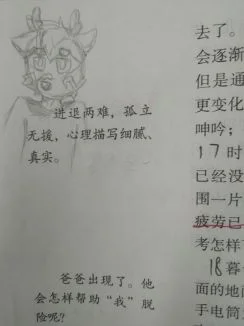 进退两难，孤立
无援，心理描写细腻、
真实。
爸爸出现了。他
会怎样帮助“我”脱
险呢？
去了。
会逐渐
但是通
更变化
呻吟；
17时
已经没
围一片
疲劳已
考怎样
18暮
面的地
手电筒